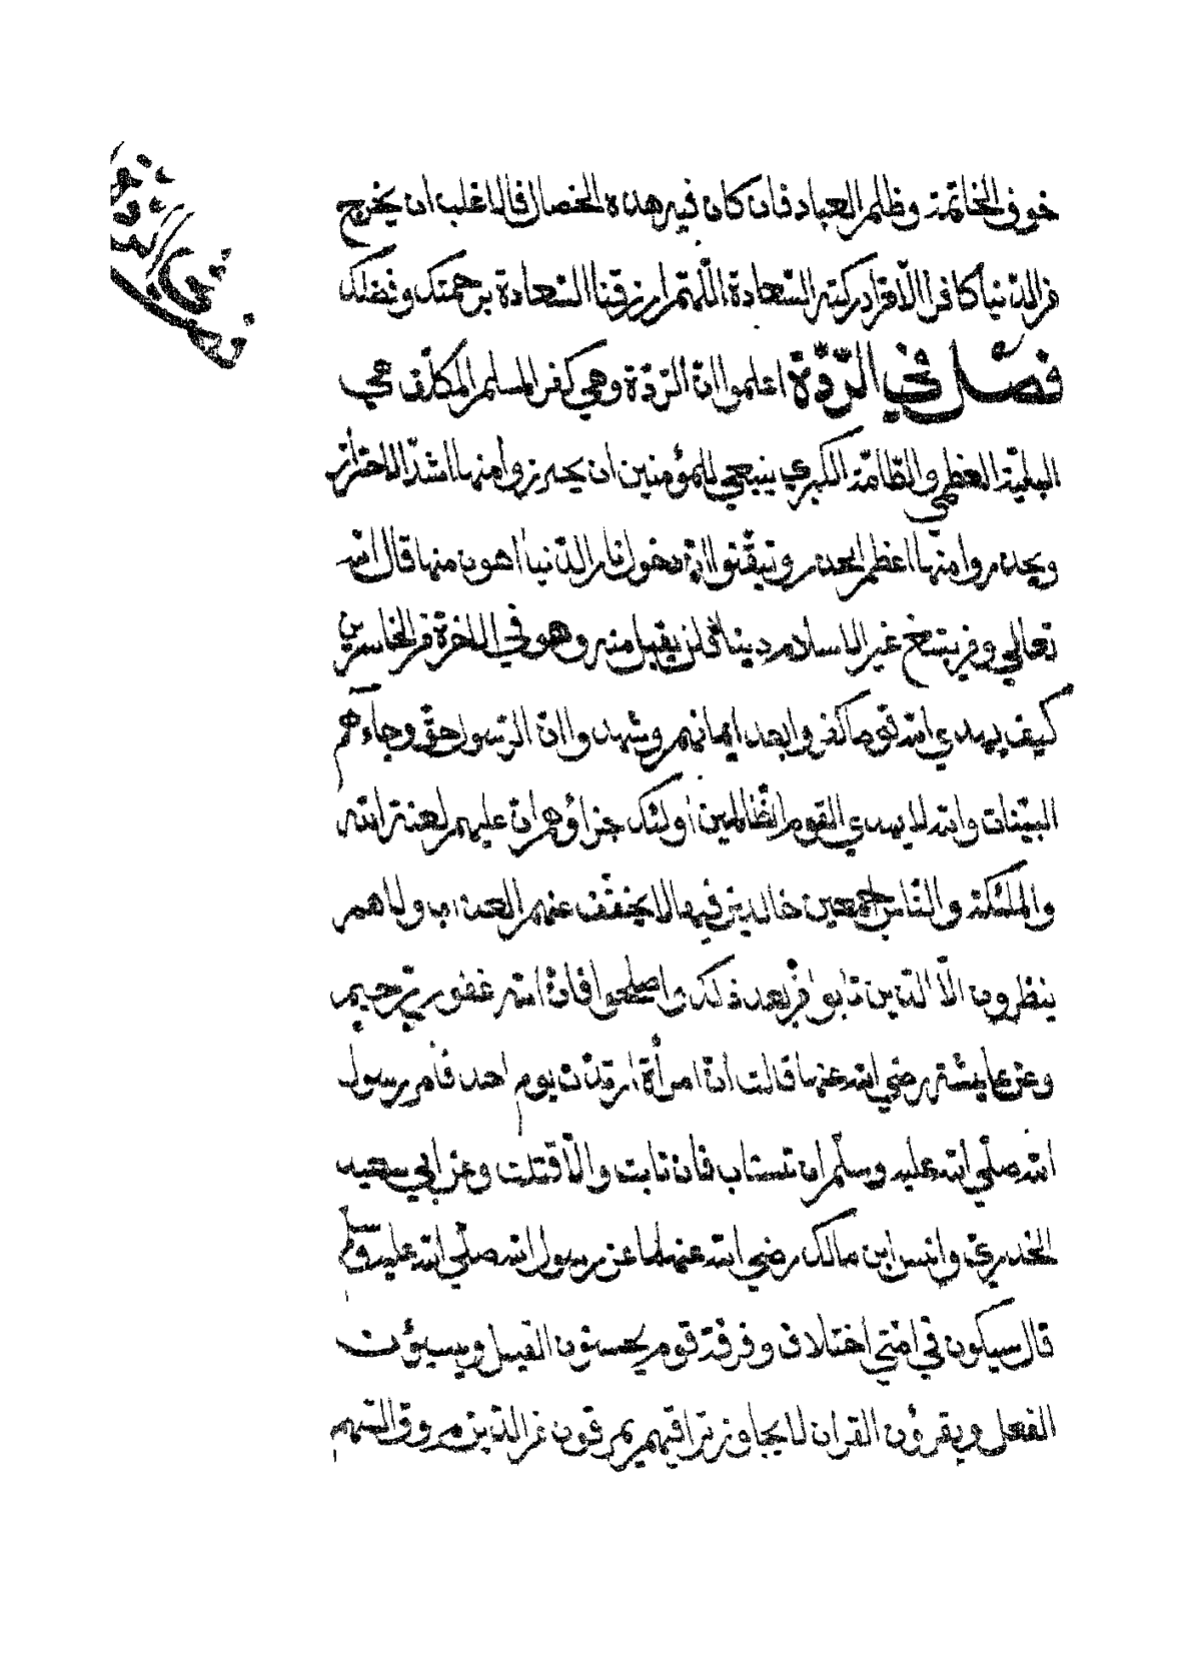 خوف الخاتمة وظلم العباد فان كان فيه هذه الخصال فالاغلب ان يخرج
من الدنيا كافرا الا من ادركته السعادة اللهم ارزقنا السعادة برحمتك وفضلك
فصل في الردة اعلموا ان الردة وهي كفر المسلم المكلف هي
البلية العظمي والطامة الكبري ينبغي للمؤمنين ان يحترزوا منها اشد الاحتراز
ويحذروا منها اعظم الحذر وتيقنوا ان دخول نار الدنيا اهون منها قال الله
تعالي ومن يبتغ غير الاسلام دينا فلن يقبل منه وهو في الاخرة من الخاسرين
كيف يهدي الله قوما كفروا بعد ايمانهم وشهدوا ان الرسول حق وجاءهم
البينات والله لا يهدي القوم الظالمين اولئك جزاؤهم ان عليهم لعنة الله
والملئكة والناس اجمعين خالدين فيها لا يخفف عنهم العذاب ولا هم
ينظرون الا الذين تابوا من بعد ذلك واصلحوا فان الله غفور رحيم
وعن عايشة رضي الله عنها قالت ان امرأة ارتدت يوم احد فأمر رسول
الله صلي الله عليه وسلم ان تستتاب فان تابت والا قتلت وعن ابي سعيد
الخدري وانس ابن مالك رضي الله عنهما عن رسول الله صلي الله عليه وسلم
قال سيكون في امتي اختلاف وفرقة قوم يحسنون القيل ويسيؤن
الفعل ويقرؤن القران لا يجاوز تراقيهم يمرقون من الدين مروق السهم